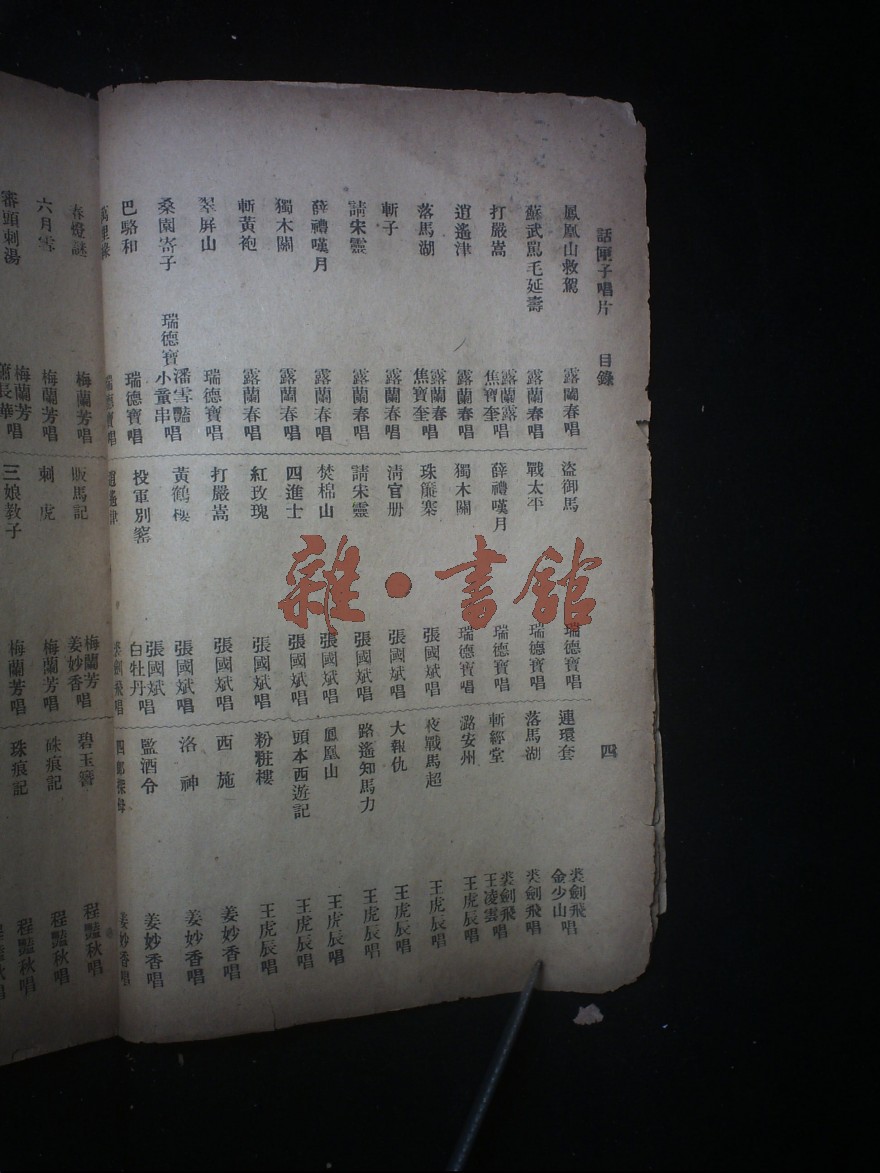 話匣子唱片 目錄 四
鳳凰山救駕 露蘭春唱
蘇武罵毛延壽 露蘭春唱
打嚴嵩 露蘭露 焦寶奎唱
逍遙津 露蘭春唱
落馬湖 露蘭春 焦寶奎唱
斬子 露蘭春唱
請宋靈 露蘭春唱
薛禮嘆月 露蘭春唱
獨木關 露蘭春唱
斬黃袍 露蘭春唱
翠屏山 瑞德寶唱
桑園寄子 瑞德寶 潘雪豔 小董串唱
巴駱和 瑞德寶唱
瑞德寶唱
盜御馬 瑞德寶唱
戰太平 瑞德寶唱
薛禮嘆月 瑞德寶唱
獨木關 瑞德寶唱
珠簾寨 張國斌唱
清官册 張國斌唱
請宋靈 張國斌唱
焚棉山 張國斌唱
四進士 張國斌唱
紅玫瑰 張國斌唱
打嚴嵩 張國斌唱
黃鶴樓 張國斌唱
投軍別窰 張國斌 白牡丹唱
逍遙津 裘劍飛唱
連環套 裘劍飛 金少山唱
落馬湖 裘劍飛唱
斬經堂 裘劍飛 王凌雲唱
潞安州 王虎辰唱
夜戰馬超 王虎辰唱
大報仇 王虎辰唱
路遙知馬力 王虎辰唱
鳳凰山 王虎辰唱
頭本西遊記 王虎辰唱
粉粧樓 王虎辰唱
西施 姜妙香唱
洛神 姜妙香唱
監酒令 姜妙香唱
四郎探母 姜妙香唱
春燈謎 梅蘭芳唱
六月雪 梅蘭芳唱
審頭刺湯 梅蘭芳 蕭長華唱
販馬記 梅蘭芳 姜妙香唱
刺虎 梅蘭芳唱
三娘教子 梅蘭芳唱
碧玉簪 程豔秋唱
硃痕記 程豔秋唱
珠痕記 程豔秋唱
程豔秋唱
雜·書館